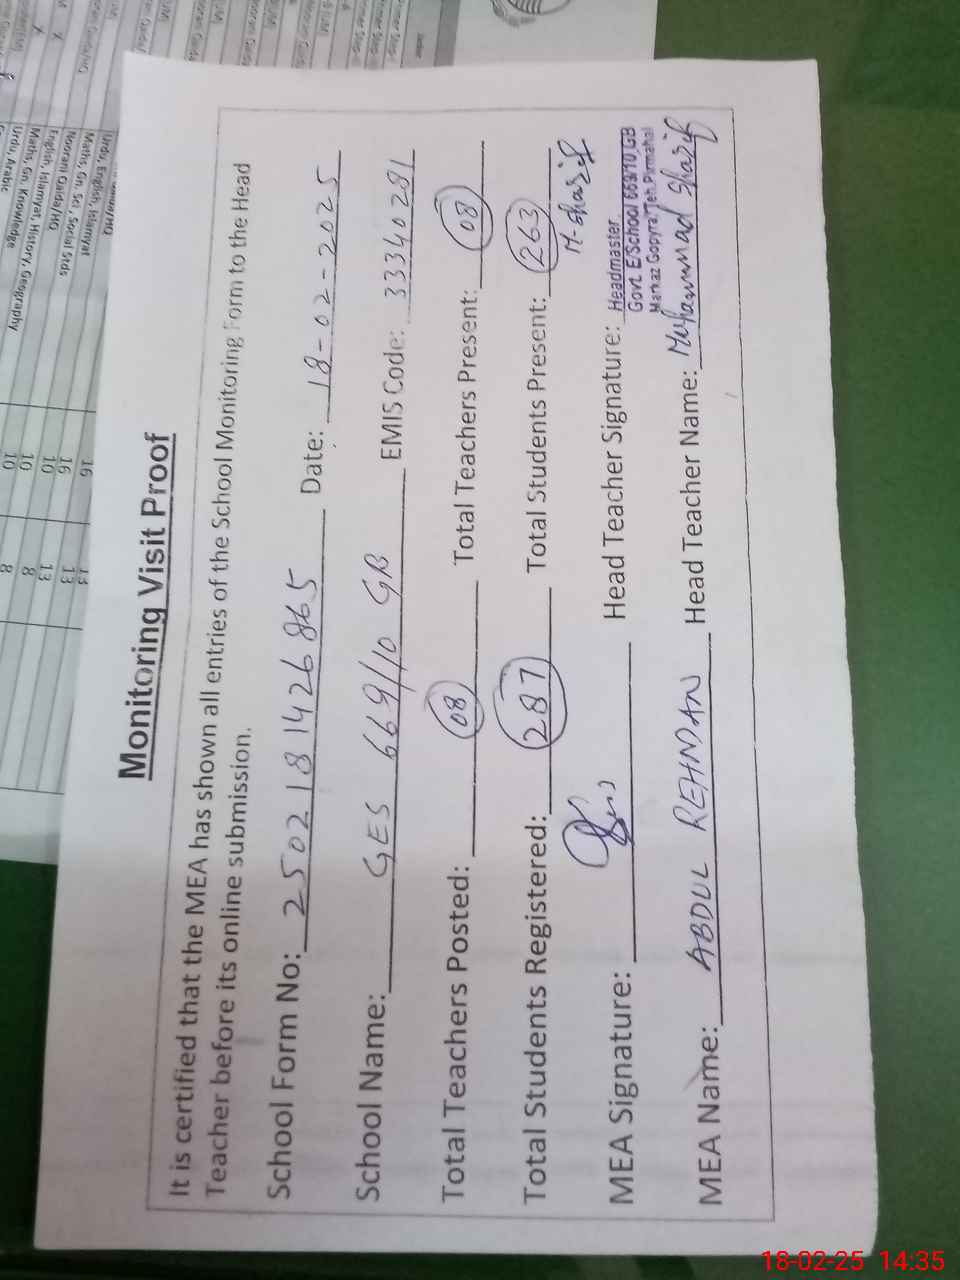 Monitoring Visit Proof
It is certified that the MEA has shown all entries of the School Monitoring Form to the Head
Teacher before its online submission.
School Form No: 2502181426865 Date: 18-02-2025
School Name: GES 669/10 GB EMIS Code: 33340281
Total Teachers Posted: 08 Total Teachers Present: 08
Total Students Registered: 287 Total Students Present: 263
M. Sharif
MEA Signature: Head Teacher Signature: Headmaster
Govt. E/School 669/10 GB
Markaz Gopyra Teh. Pirmahal
MEA Name: ABDUL REHMAN Head Teacher Name: Muhammad Sharif
Urdu, English, Islamyat 16 13
Maths, Gn. Sci, Social Stds 16 13
Noorani Qaida/HQ 10
English, Islamyat, History, Geography 10 8
Maths, Gn. Knowledge 10 8
Urdu, Arabic
18-02-25 14:35